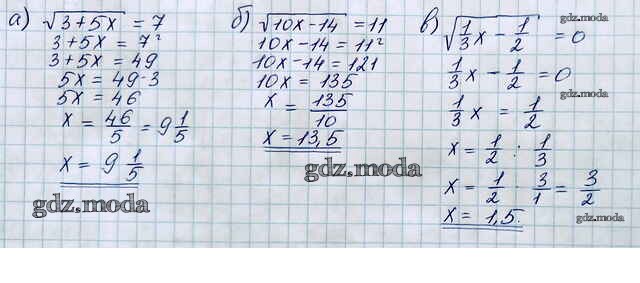 а) √(3+5x) = 7
3+5x = 7²
3+5x = 49
5x = 49-3
5x = 46
x = 46/5 = 9 1/5
x = 9 1/5
gdz.moda
б) √(10x-14) = 11
10x-14 = 11²
10x-14 = 121
10x = 135
x = 135/10
x = 13,5
gdz.moda
в) √(1/3 x - 1/2) = 0
gdz.moda
1/3 x - 1/2 = 0
gdz.moda
1/3 x = 1/2
x = 1/2 : 1/3
x = 1/2 · 3/1 = 3/2
x = 1,5.
gdz.moda